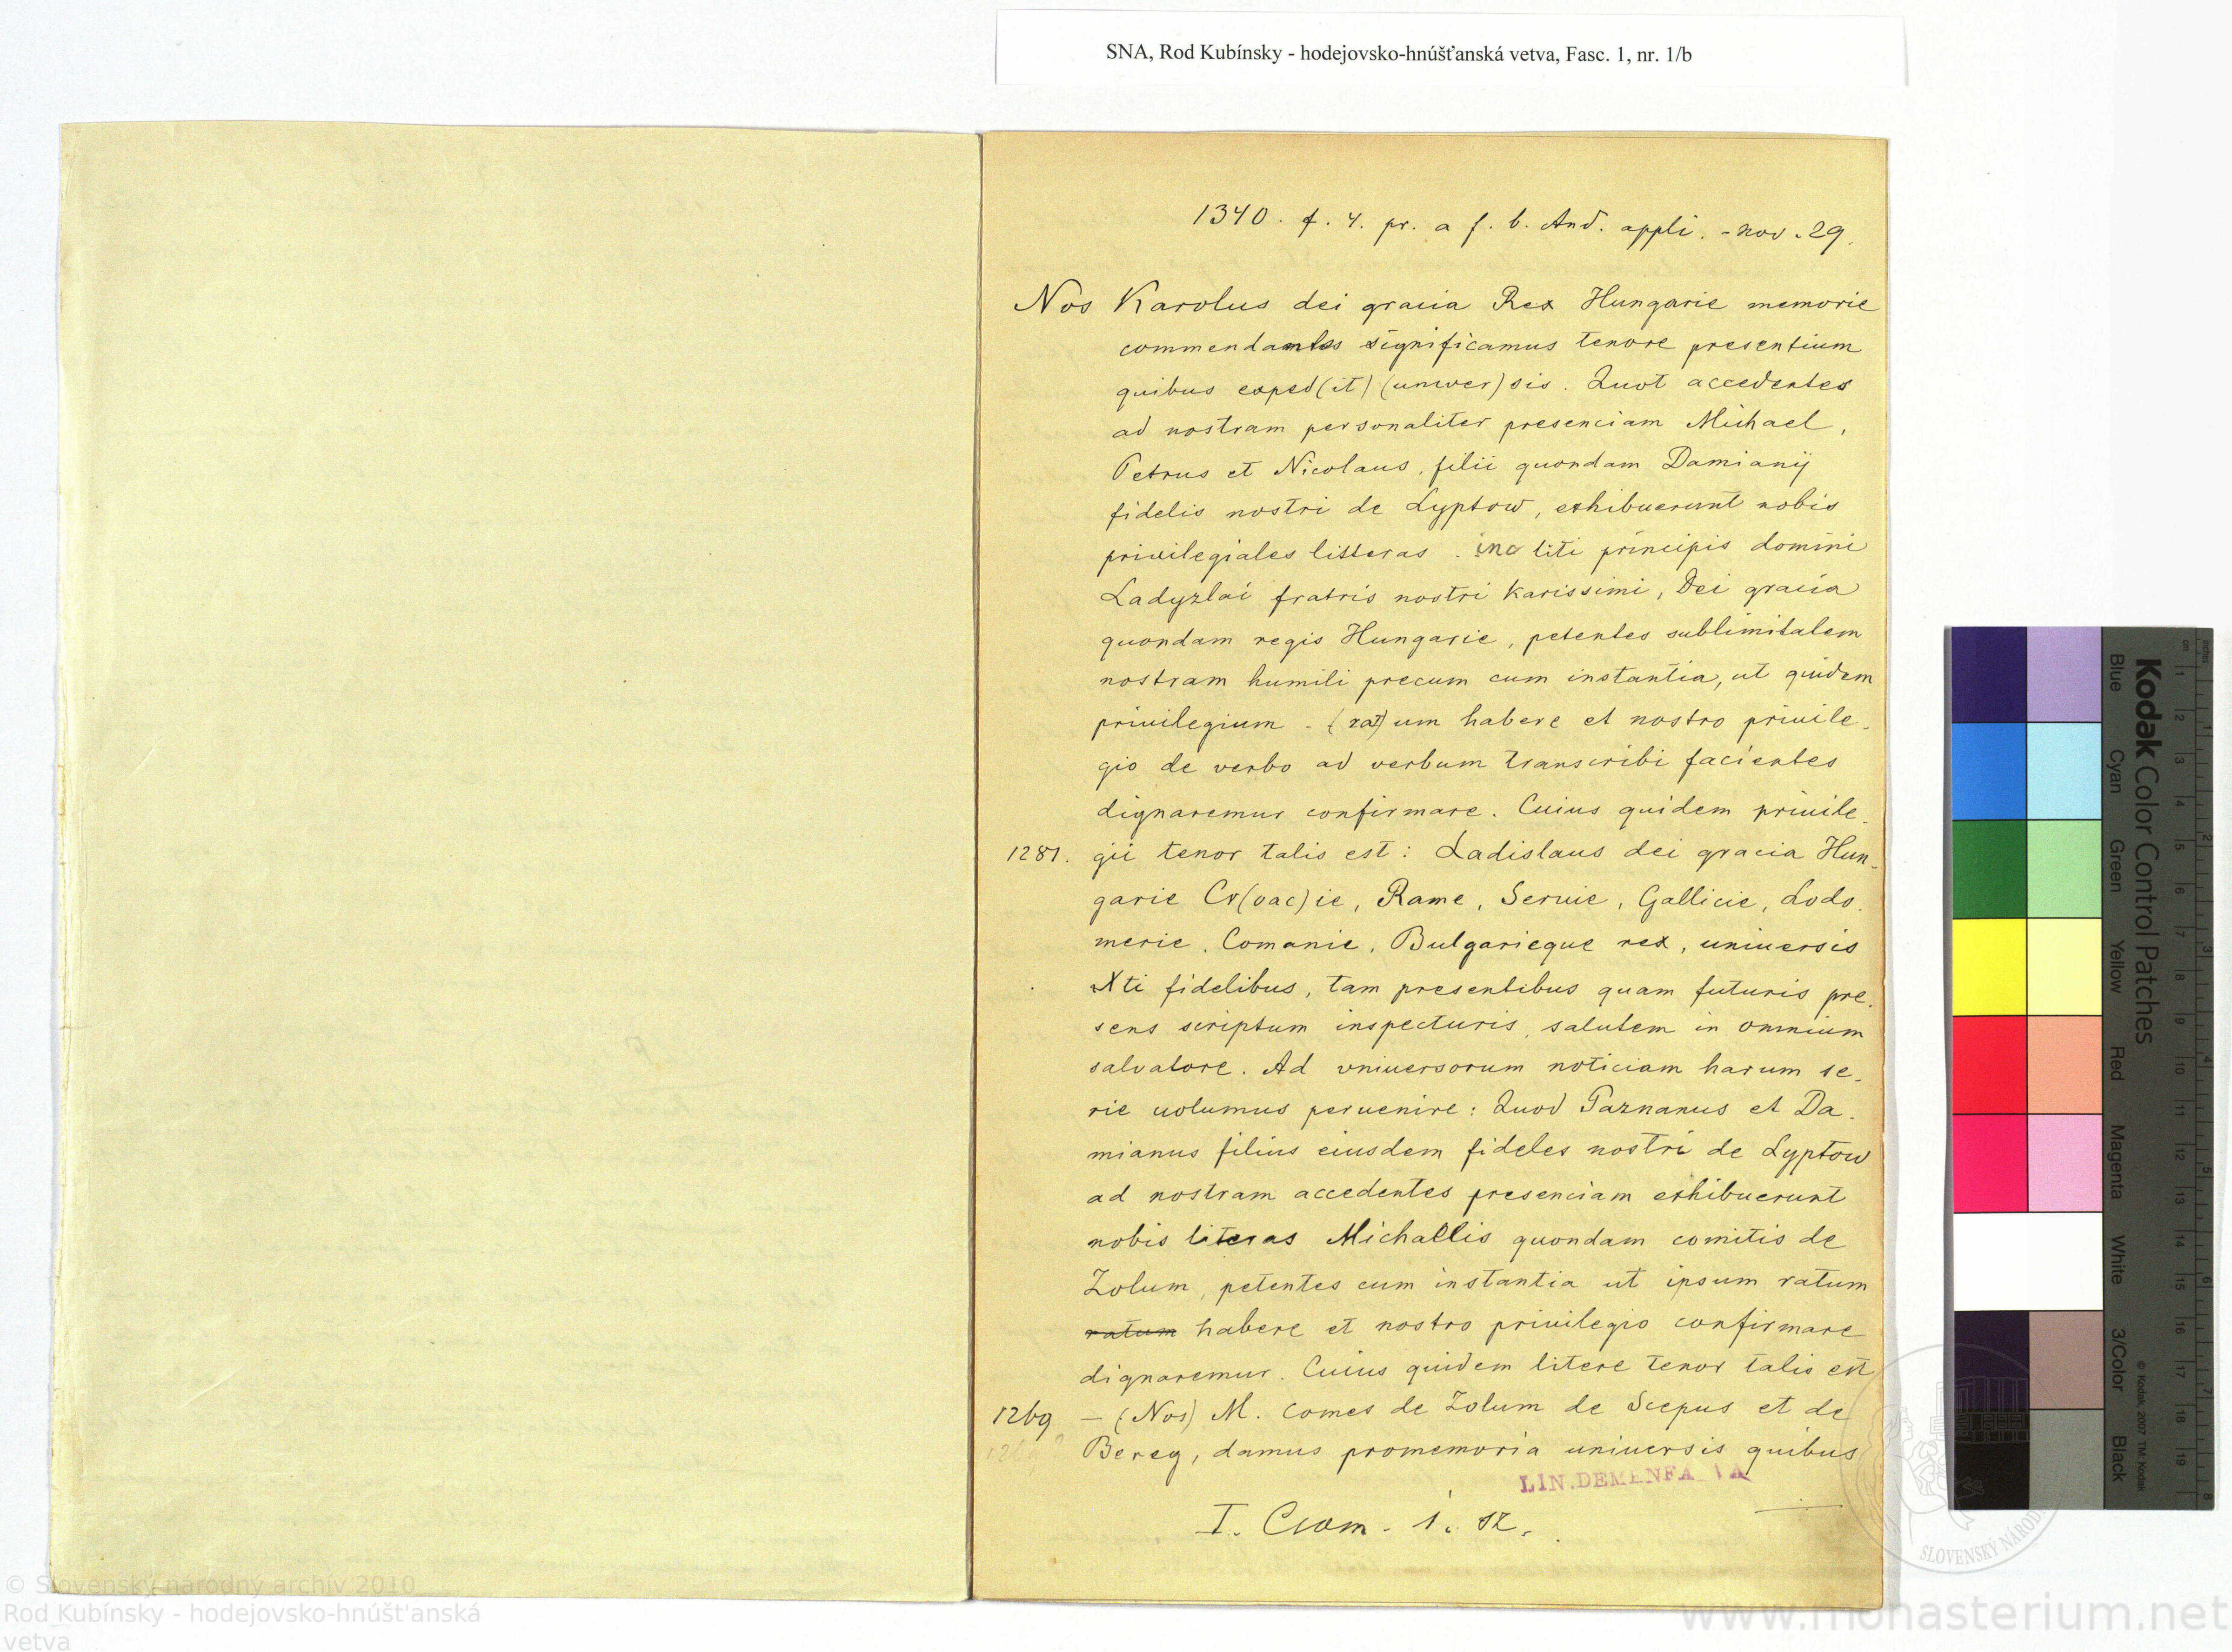 SNA, Rod Kubínsky - hodejovsko-hnúšťanská vetva, Fasc. 1, nr. 1/b
1340. f. 4. pr. a f. b. And. appli. - nov. 29.
Nos Karolus dei gracia Rex Hungarie memorie
commendantes significamus tenore presentium
quibus exped(it) (univer)sis. Quot accedentes
ad nostram personaliter presenciam Michael,
Petrus et Nicolaus, filii quondam Damianij
fidelis nostri de Lyptow, exhibuerunt nobis
priuilegiales litteras. incliti principis domini
Ladyzlai fratris nostri karissimi, Dei gracia
quondam regis Hungarie, petentes sublimitatem
nostram humili precum cum instantia, ut quidem
priuilegium - (rat)um habere et nostro priuile-
gio de verbo ad verbum transcribi facientes
dignaremur confirmare. Cuius quidem priuile-
1281. gii tenor talis est: Ladislaus dei gracia Hun-
garie Cr(oac)ie, Rame, Seruie, Gallicie, Lodo-
merie, Comanie, Bulgarieque rex, uniuersis
Xti fidelibus, tam presentibus quam futuris pre-
sens scriptum inspecturis, salutem in omnium
salvatore. Ad vniuersorum noticiam harum se-
rie uolumus peruenire: Quod Paznanus et Da-
mianus filius eiusdem fideles nostri de Lyptow
ad nostram accedentes presenciam exhibuerunt
nobis literas Michaelis quondam comitis de
Zolum, petentes cum instantia ut ipsum ratum
ratum habere et nostro priuilegio confirmare
dignaremur. Cuius quidem litere tenor talis est
1269 - (Nos) M. comes de Zolum de Scepus et de
Bereg, damus promemoria uniuersis quibus
LIN. DEMENFA VA
I. Csom. 1. sz.
SLOVENSKÝ NÁROD
Kodak Color Control Patches
Blue Cyan Green Yellow Red Magenta White 3/Color Black
© Kodak 2007 TM: Kodak
© Slovenský národný archív 2010
Rod Kubínsky - hodejovsko-hnúšťanská
vetva
www.monasterium.net